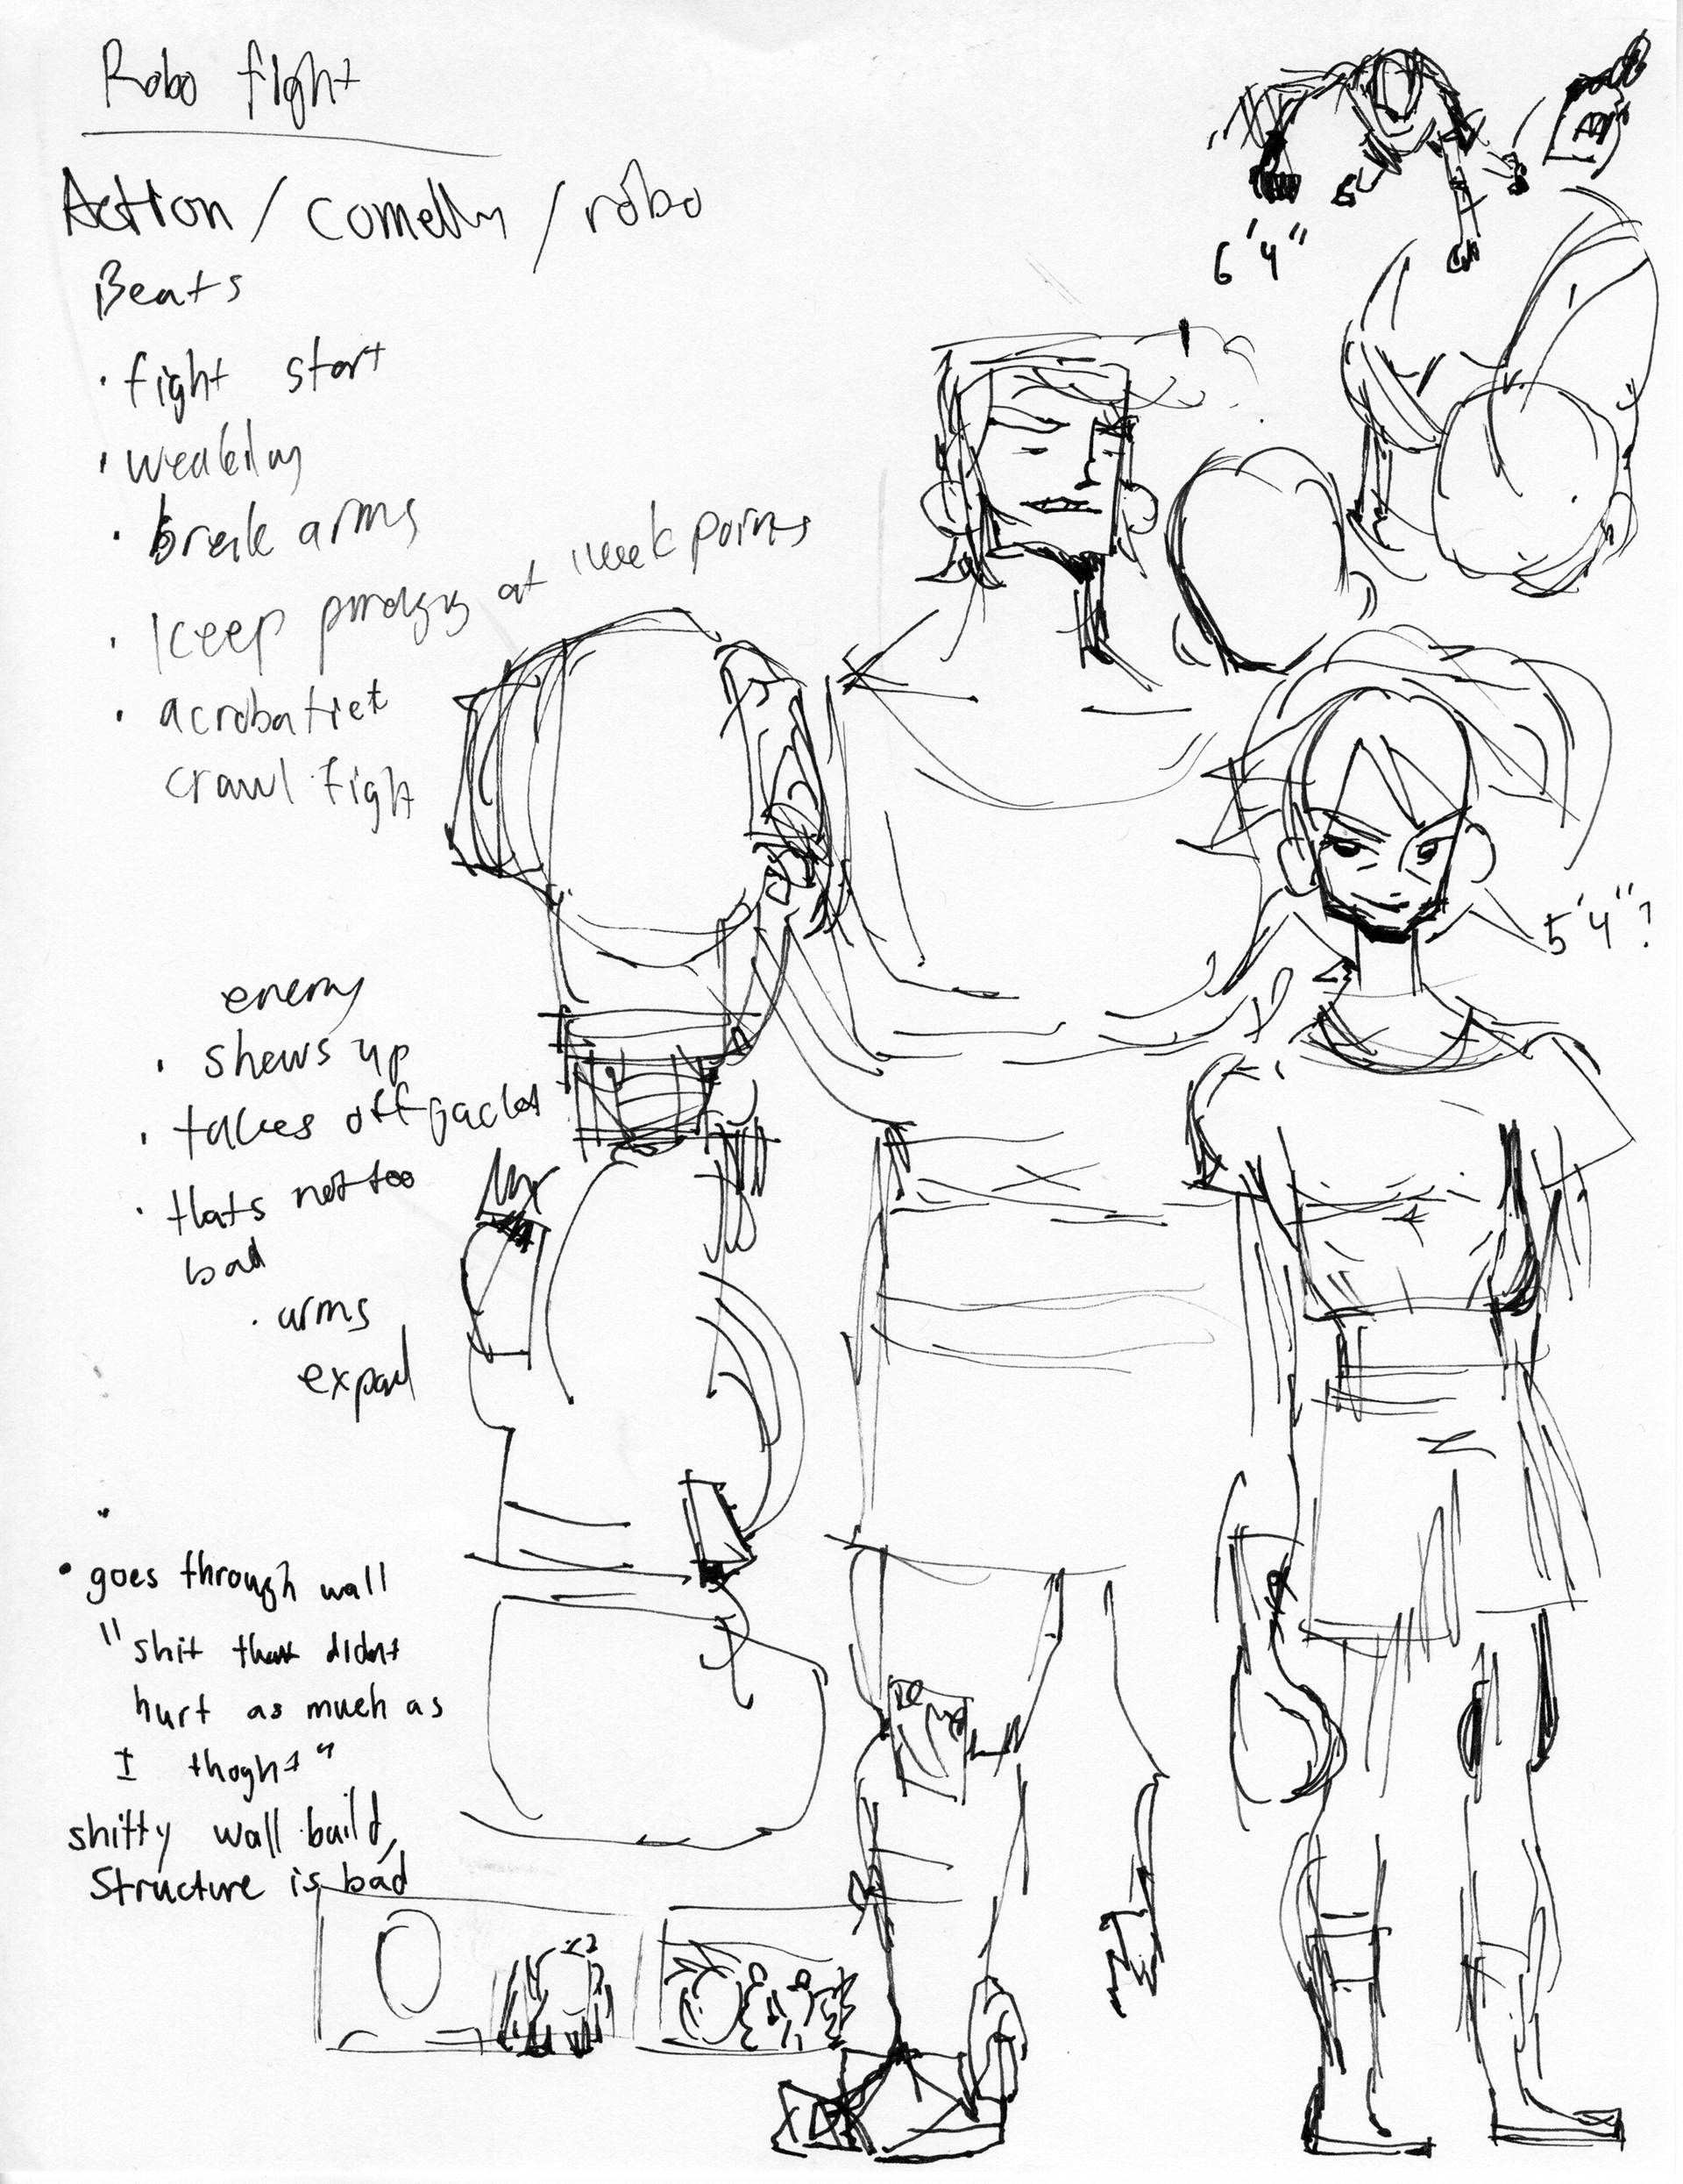 Robo fight
Action / comedy / robo
Beats
• fight start
•
• break arms
• keep at week points
• acrobatict
crawl figh
enemy
• shows up
• takes off jacket
• thats not too
bad
• arms
expad
• goes through wall
"shit that didnt
hurt as much as
I thoght"
shitty wall build,
structure is bad
6'4"
5'4"?